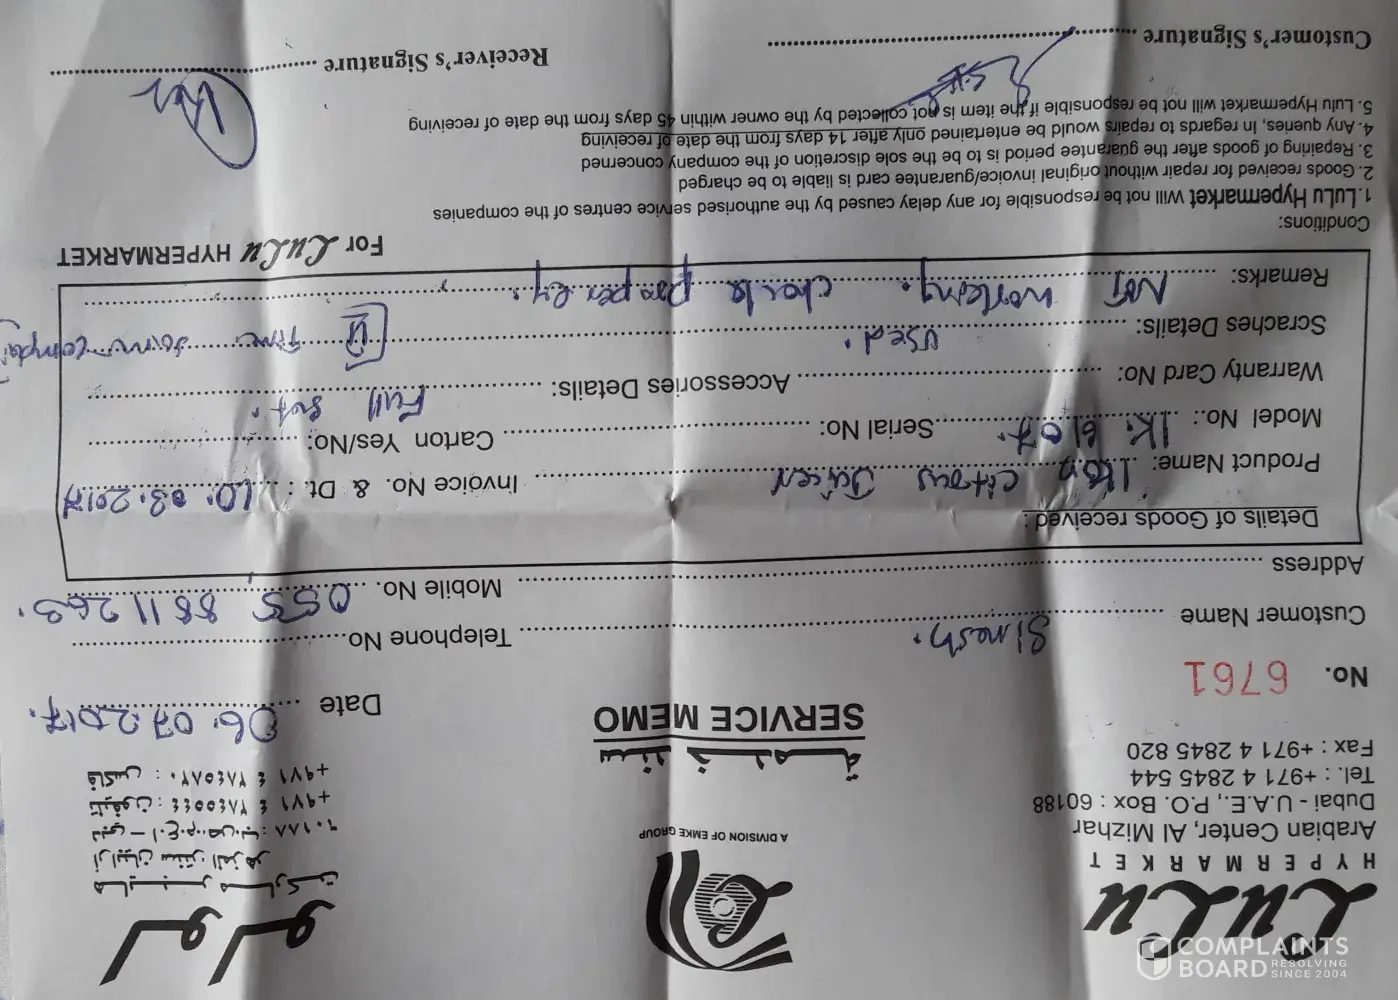 LuLu
HYPERMARKET
Arabian Center, Al Mizhar
Dubai - U.A.E., P.O. Box : 60188
Tel. : +971 4 2845 544
Fax : +971 4 2845 820
A DIVISION OF EMKE GROUP
لولو
هايبر ماركت
أرابيان سنتر، المزهر
دبي – ا.ع.م.، ص.ب: ٦٠١٨٨
تليفون: ٢٨٤٥٥٤٤ ٤ ٩٧١+
فاكس: ٢٨٤٥٨٢٠ ٤ ٩٧١+
سند خدمة
SERVICE MEMO
Date 06.07.2017.
No. 6761
Customer Name Simesh. Telephone No
Address Mobile No. 055 8811263.
Details of Goods received :
Product Name: Ikon citrous Juicer Invoice No. & Dt. : 10.03.2017
Model No.: IK.6107. Serial No: Carton Yes/No:
Warranty Card No: Accessories Details: Full set.
Scraches Details: Used. Time same
Remarks: Not working. check properly.
For LuLu HYPERMARKET
Conditions:
1. LuLu Hypermarket will not be responsible for any delay caused by the authorised service centres of the companies
2. Goods received for repair without original invoice/guarantee card is liable to be charged
3. Repairing of goods after the guarantee period is to be the sole discretion of the company concerned
4. Any queries, in regards to repairs would be entertained only after 14 days from the date of receiving
5. Lulu Hypermarket will not be responsible if the item is not collected by the owner within 45 days from the date of receiving
Customer's Signature Receiver's Signature
COMPLAINTS
BOARD RESOLVING SINCE 2004